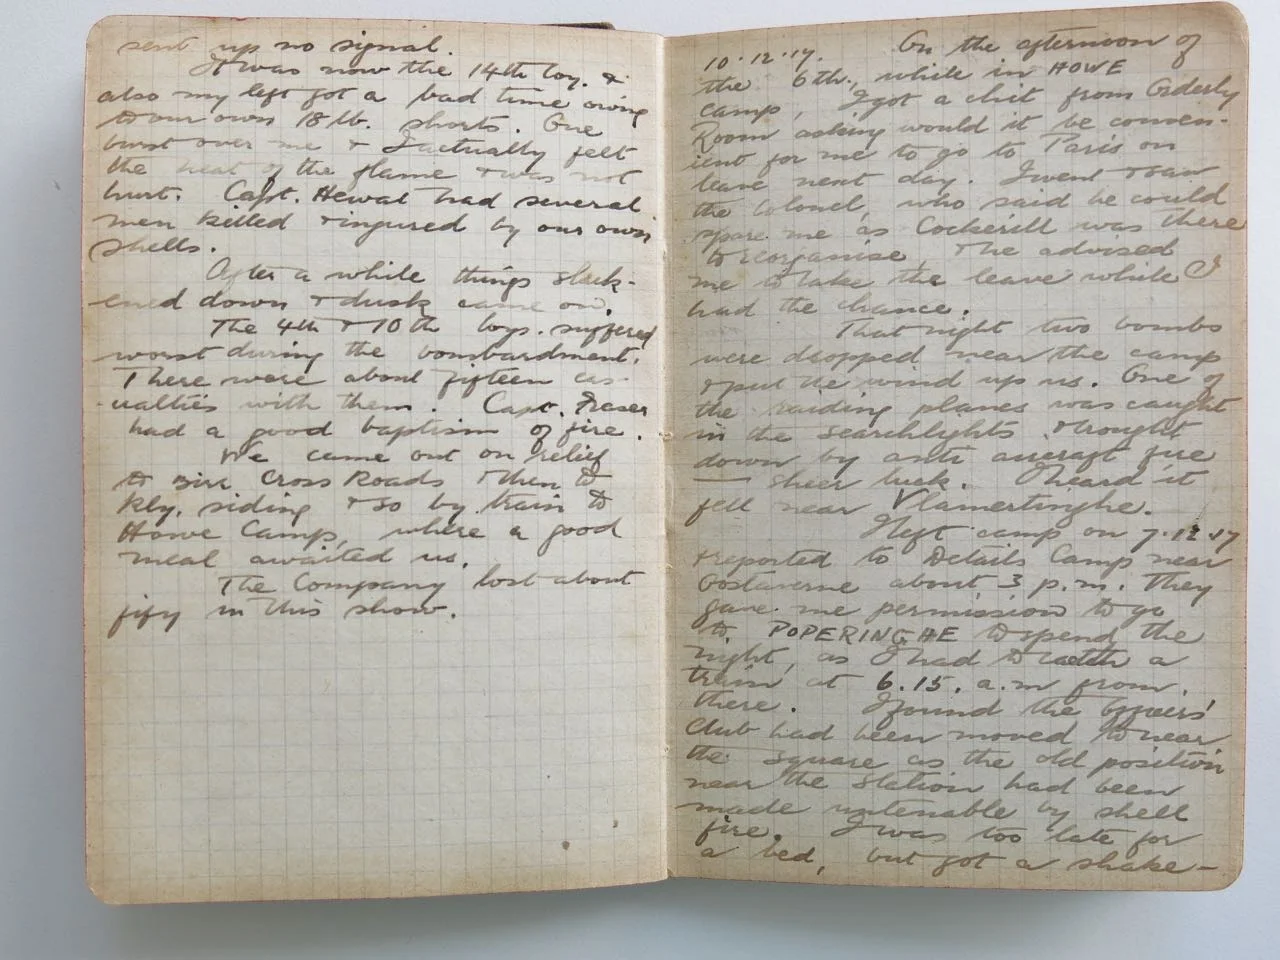 sent up no signal.
It was now the 14th Coy. &
also my left got a bad time owing
to our own 18 lb. shorts. One
burst over me & I actually felt
the heat of the flame & was not
hurt. Capt. Hewat had several
men killed & injured by our own
shells.
After a while things slack-
ened down & dusk came on.
The 4th & 10th Coys. suffered
worst during the bombardment.
There were about fifteen cas-
ualties with them. Capt. Fraser
had a good baptism of fire.
We came out on relief
to Birr Cross Roads & then to
Rly. siding & so by train to
Howe Camp, where a good
meal awaited us.
The Company lost about
fify in this show.
10.12.17. On the afternoon of
the 6th., while in HOWE
camp, I got a chit from Orderly
Room asking would it be conven-
ient for me to go to Paris on
leave next day. I went & saw
the Colonel, who said he could
spare me as Cockerill was there
to reorganise, & he advised
me to take the leave while I
had the chance.
That night two bombs
were dropped near the camp
& put the wind up us. One of
the raiding planes was caught
in the searchlights & brought
down by anti aircraft fire
— sheer luck. I heard it
fell near Vlamertinghe.
I left camp on 7.12.17
& reported to Details Camp near
Oostaverne about 3 p.m. They
gave me permission to go
to POPERINGHE to spend the
night, as I had to catch a
train at 6.15. a.m from
there. I found the Officers'
Club had been moved to near
the square as the old position
near the station had been
made untenable by shell
fire. I was too late for
a bed, but got a shake-